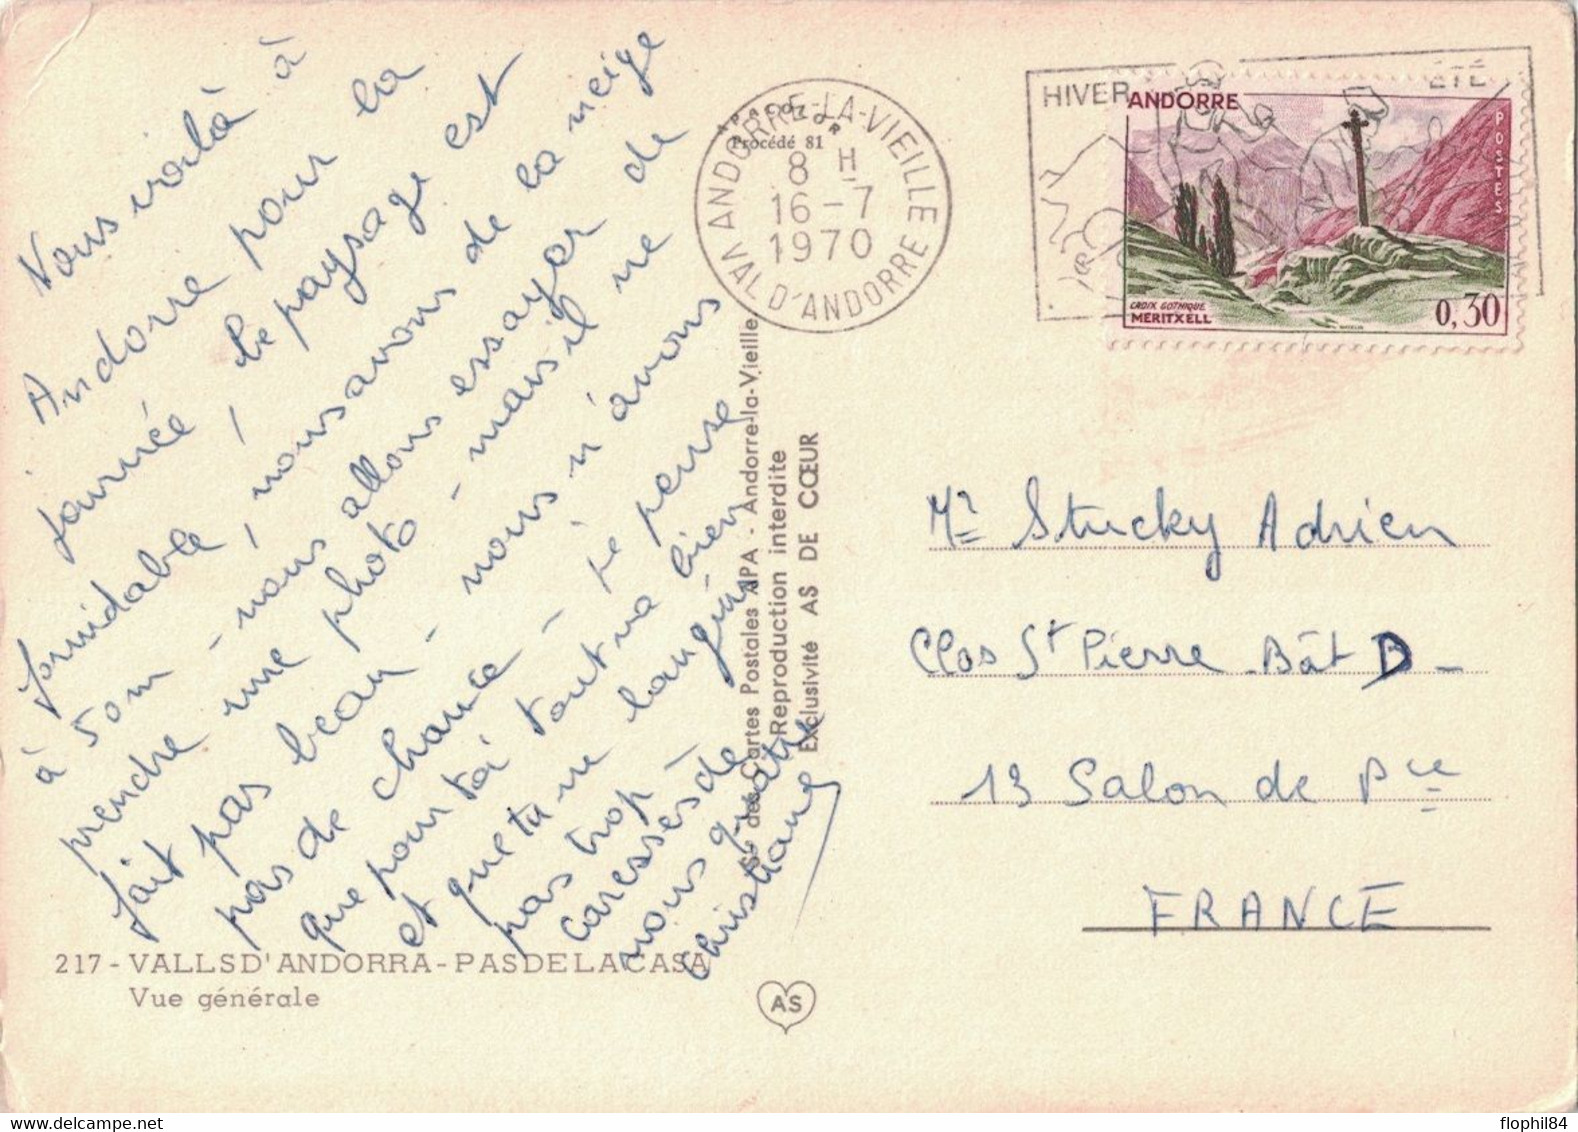 Nous voilà à
Andorre pour la
journée, le paysage est
formidable, nous avons de la neige
à 50m - nous allons essayer de
prendre une photo - mais il ne
fait pas beau - nous n'avons
pas de chance - je pense
que pour toi tout va bien
et que tu ne languis
pas trop
caresses de
nous quatre
Christiane
217 - VALLS D'ANDORRA - PAS DE LA CASA
Vue générale
APACOLOR
Procédé 81
ANDORRE-LA-VIEILLE
8 H
16-7
1970
VAL D'ANDORRE
HIVER
ÉTÉ
ANDORRE
POSTES
CROIX GOTHIQUE
MERITXELL
0,30
Sté des Cartes Postales APA - Andorre-la-Vieille
Reproduction interdite
Exclusivité AS DE CŒUR
AS
Mr Stucky Adrien
Clos St Pierre - Bât D -
13 Salon de Pce
FRANCE
flophil84